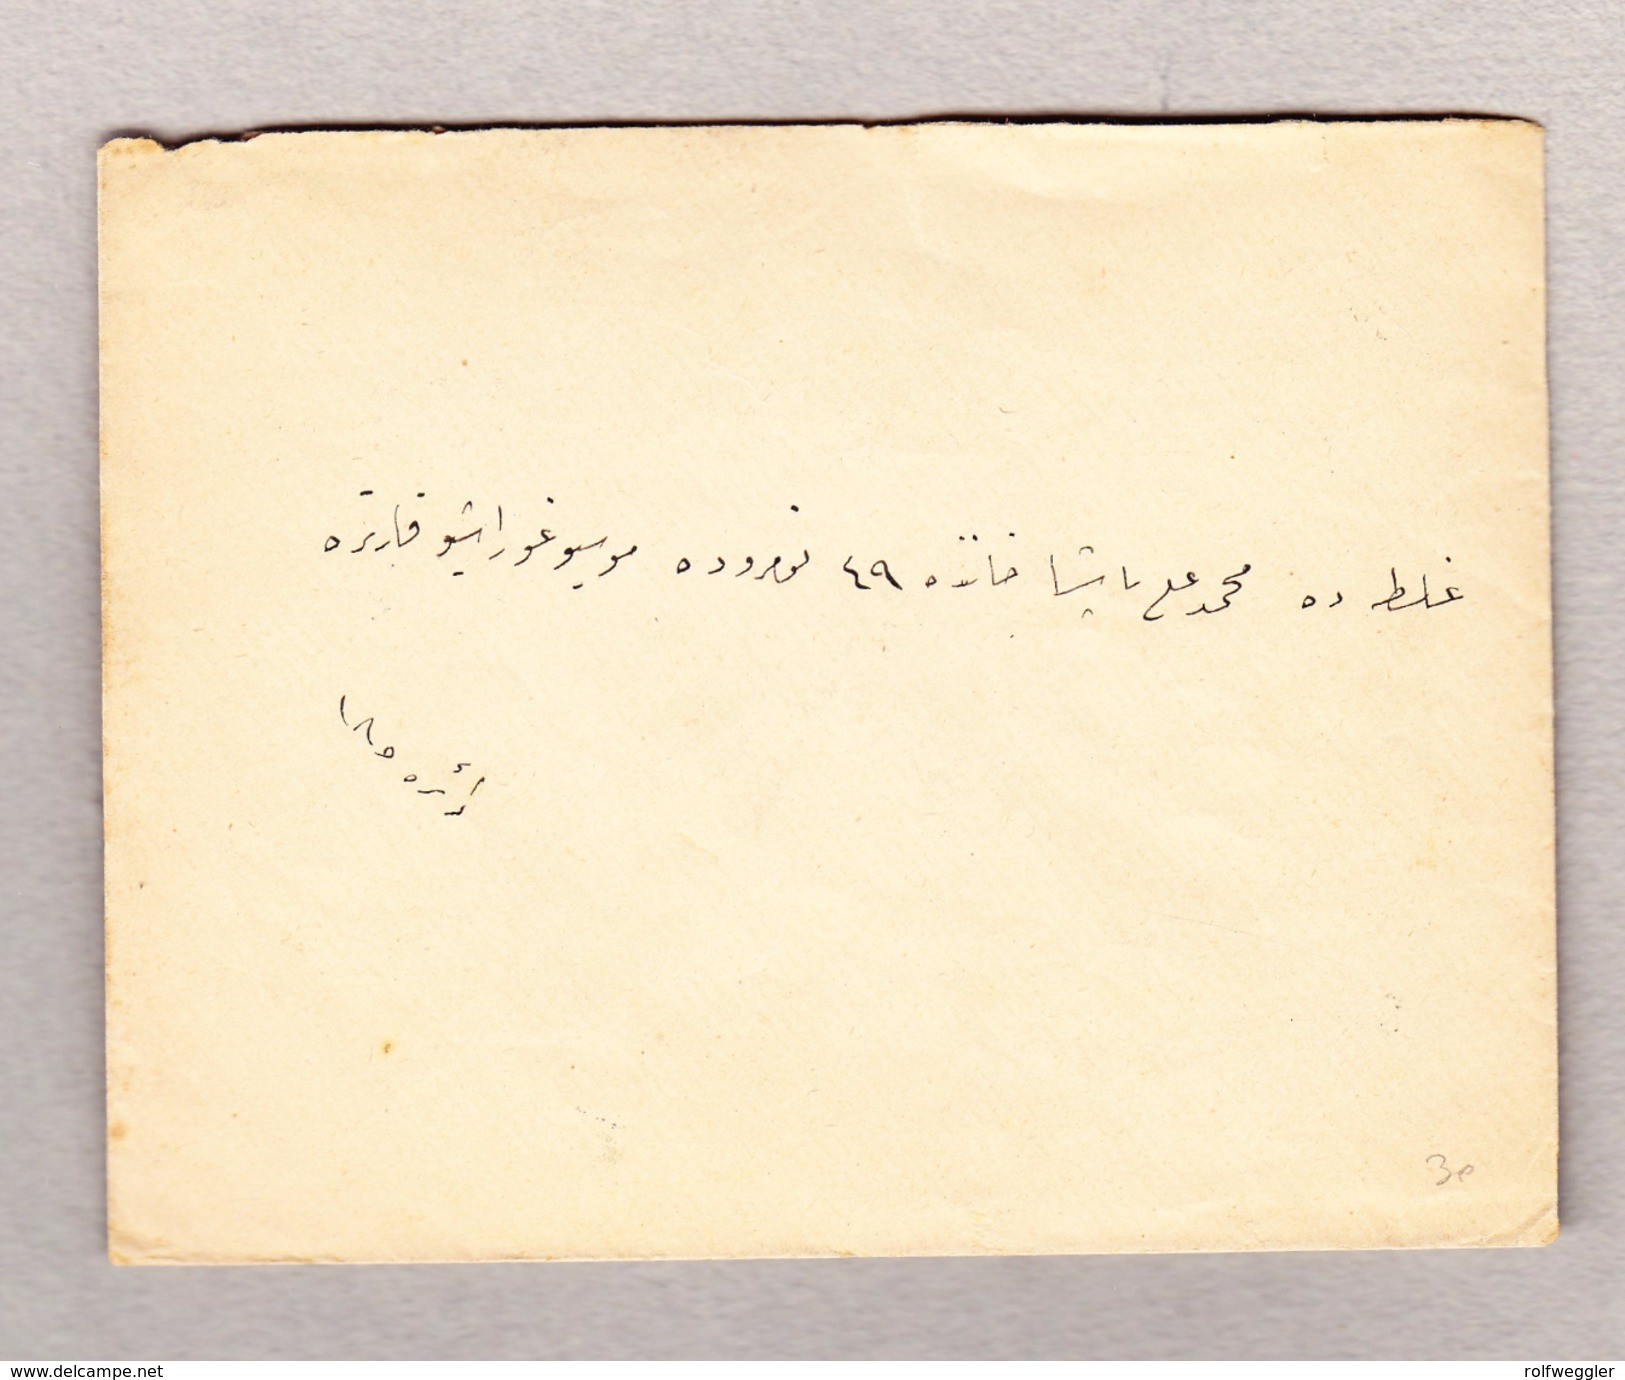 غلطه ده محمد علی پاشا خاننده ٤٩ نومروده موسیو غوراشو قارتره
دائره
3e
www.delcampe.net
rolfweggler